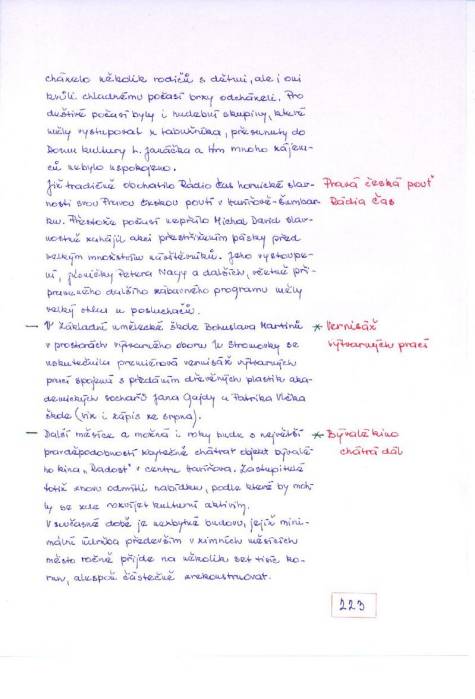 cházelo několik rodičů s dětmi, ale i oni
kvůli chladnému počasí brzy odcházeli. Pro
deštivé počasí byly i hudební skupiny, které
měly vystupovat u tabulníka, přesunuty do
Domu kultury L. Janáčka a tím mnoho zájem-
ců nebylo uspokojeno.
Již tradičně obohatilo Rádio Čas hornické slav-
nosti svou Pravou českou poutí v Havířově-Šumbar
ku. Přestože počasí nepřálo Michal David slav-
nostně zahájil akci přestřižením pásky před
velkým množstvím návštěvníků. Jeho vystoupe-
ní, písničky Petera Nagy a dalších, včetně při-
praveného dalšího zábavného programu měly
velký ohlas u posluchačů.
Pravá česká pouť
Rádia Čas
— V Základní umělecké škole Bohuslava Martinů
v prostorách výtvarného oboru U Stromovky se
uskutečnila premiérová vernisáž výtvarných
prací spojená s předáním dřevěných plastik aka-
demických sochařů Jana Gajdy a Patrika Vlčka
škole (viz i zápis ze srpna).
* Vernisáž
výtvarných prací
— Další měsíce a možná i roky bude s největší
pravděpodobností zbytečně chátrat objekt bývalé-
ho kina "Radost" v centru Havířova. Zastupitelé
totiž znovu odmítli nabídku, podle které by moh-
ly se zde rozvíjet kulturní aktivity.
V současné době je nezbytné budovu, jejíž mini-
mální údržba především v zimních měsících
město ročně přijde na několik set tisíc ko-
run, alespoň částečně zrekonstruovat.
* Bývalé kino
chátrá dál
223